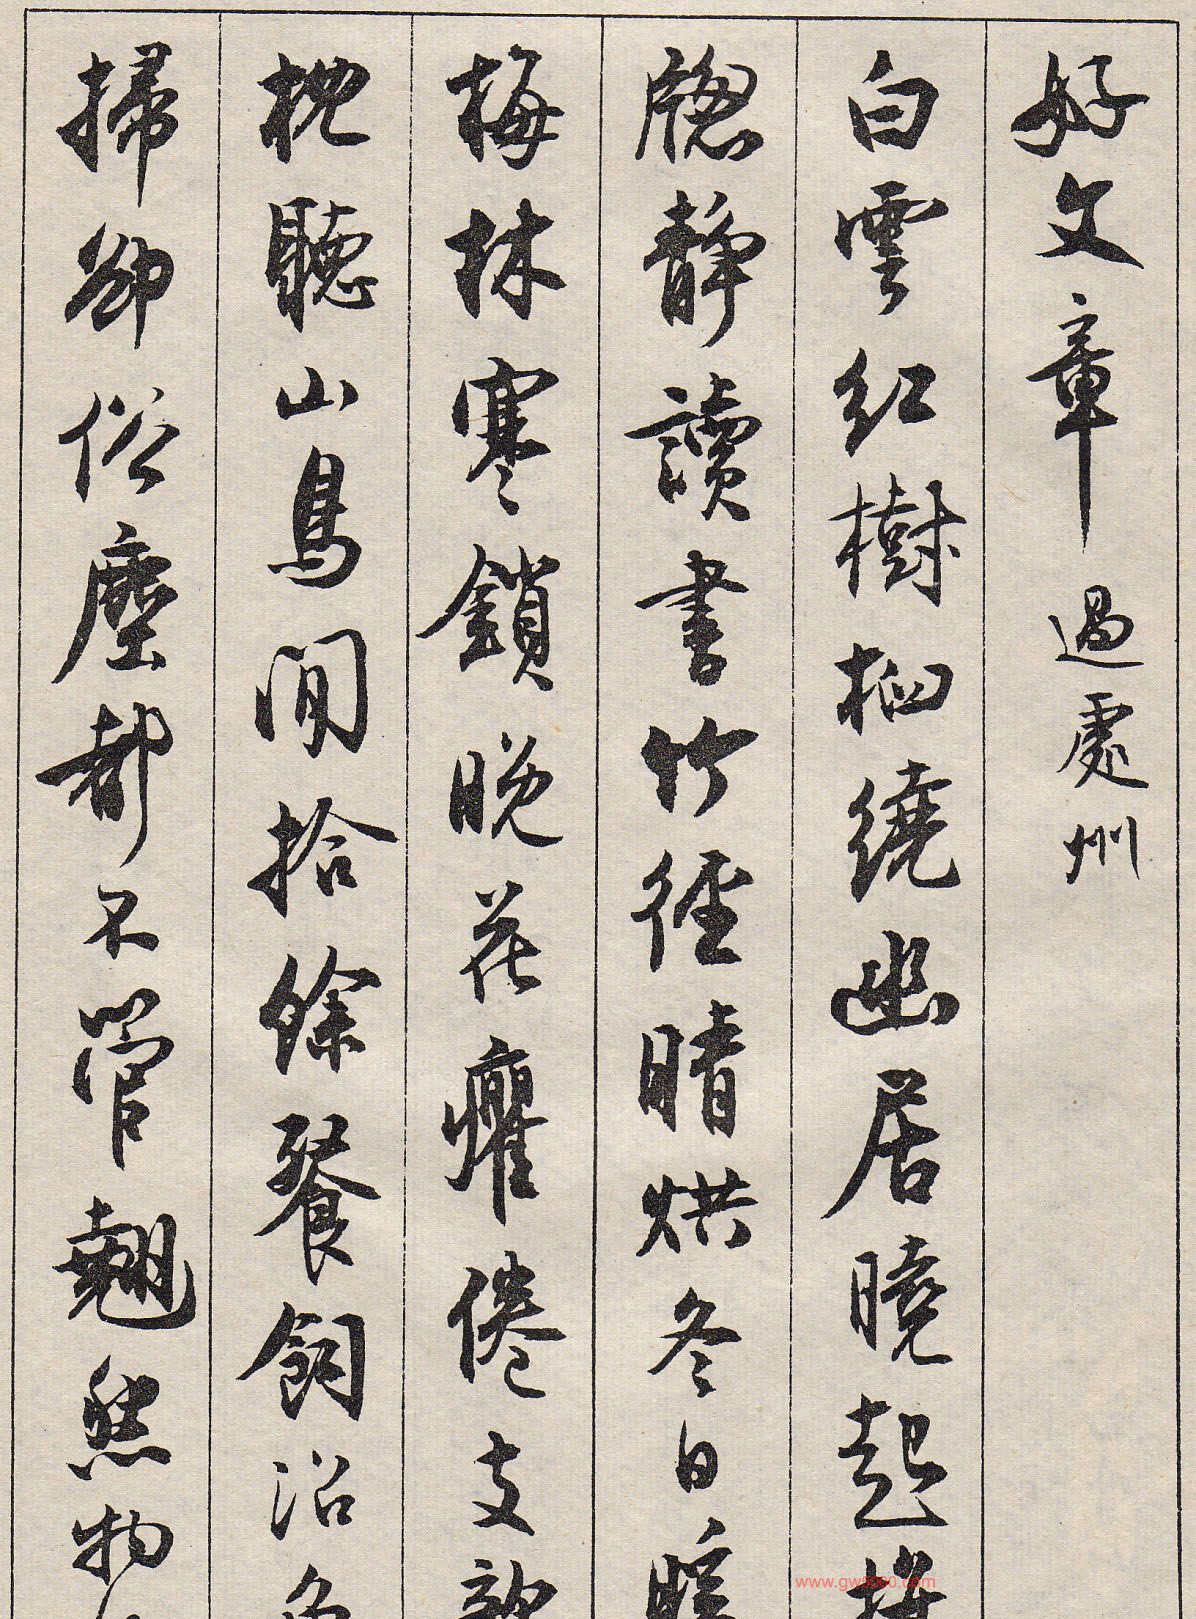 好文章 過處州
白雲紅樹栖繞幽居曉起
牕靜讀書竹徑晴烘冬日暖
梅林寒鎖晚花癯倦支
枕聽山鳥閒拾餘餐飼沼魚
掃卻俗塵都不管翹然物
www.gw5000.com